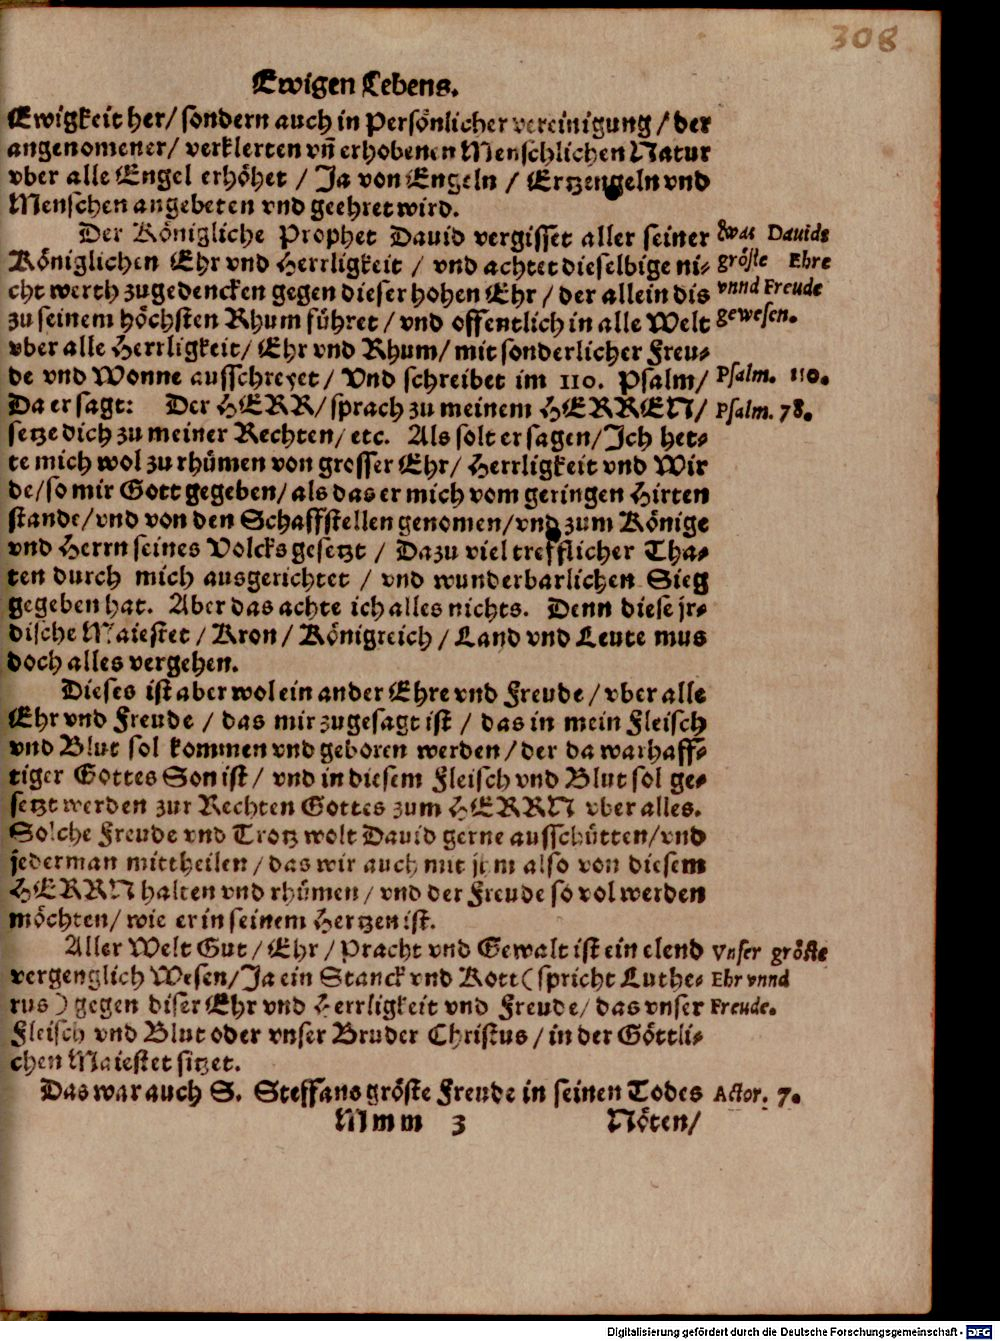 308
Ewigen Lebens.
Ewigkeit her/ sondern auch in Persönlicher vereinigung / der
angenomener/ verklerten vn̄ erhobenen Menschlichen Natur
vber alle Engel erhöhet / Ja von Engeln / Ertzengeln vnd
Menschen angebeten vnd geehret wird.
Der Königliche Prophet Dauid vergisset aller seiner
Königlichen Ehr vnd Herrligkeit / vnd achtet dieselbige ni-
cht werth zugedencken gegen dieser hohen Ehr / der allein dis
zu seinem höchsten Rhum führet / vnd offentlich in alle Welt
vber alle Herrligkeit/ Ehr vnd Rhum/ mit sonderlicher Freu-
de vnd Wonne ausschreyet/ Vnd schreibet im 110. Psalm/
Da er sagt: Der HERR/ sprach zu meinem HERREN/
setze dich zu meiner Rechten/ etc. Als solt er sagen/ Ich het-
te mich wol zu rhümen von grosser Ehr/ Herrligkeit vnd Wir
de/ so mir Gott gegeben/ als das er mich vom geringen Hirten
stande/ vnd von den Schaffstellen genomen/ vnd zum Könige
vnd Herrn seines Volcks gesetzt / Dazu viel trefflicher Tha-
ten durch mich ausgerichtet / vnd wunderbarlichen Sieg
gegeben hat. Aber das achte ich alles nichts. Denn diese jr-
dische Maiestet / Kron/ Königreich / Land vnd Leute mus
doch alles vergehen.
Dieses ist aber wol ein ander Ehre vnd Freude / vber alle
Ehr vnd Freude / das mir zugesagt ist / das in mein Fleisch
vnd Blut sol kommen vnd geboren werden / der da warhaff-
tiger Gottes Son ist / vnd in diesem Fleisch vnd Blut sol ge-
setzt werden zur Rechten Gottes zum HERRN vber alles.
Solche Freude vnd Trotz wolt Dauid gerne ausschütten/ vnd
jederman mittheilen / das wir auch mit jm also von diesem
HERRN halten vnd rhümen / vnd der Freude so vol werden
möchten/ wie er in seinem Hertzen ist.
Aller Welt Gut / Ehr / Pracht vnd Gewalt ist ein elend
vergenglich Wesen/ Ja ein Stanck vnd Kott ( spricht Luthe-
rus ) gegen diser Ehr vnd Herrligkeit vnd Freude/ das vnser
Fleisch vnd Blut oder vnser Bruder Christus / in der Göttli-
chen Maiestet sitzet.
Das war auch S. Steffans gröste Freude in seinen Todes
Mmm 3 Nöten/
Was Dauids
gröste Ehre
vnnd Freude
gewesen.
Psalm. 110.
Psalm. 78.
Vnser gröste
Ehr vnnd
Freude.
Actor. 7.
Digitalisierung gefördert durch die Deutsche Forschungsgemeinschaft - DFG